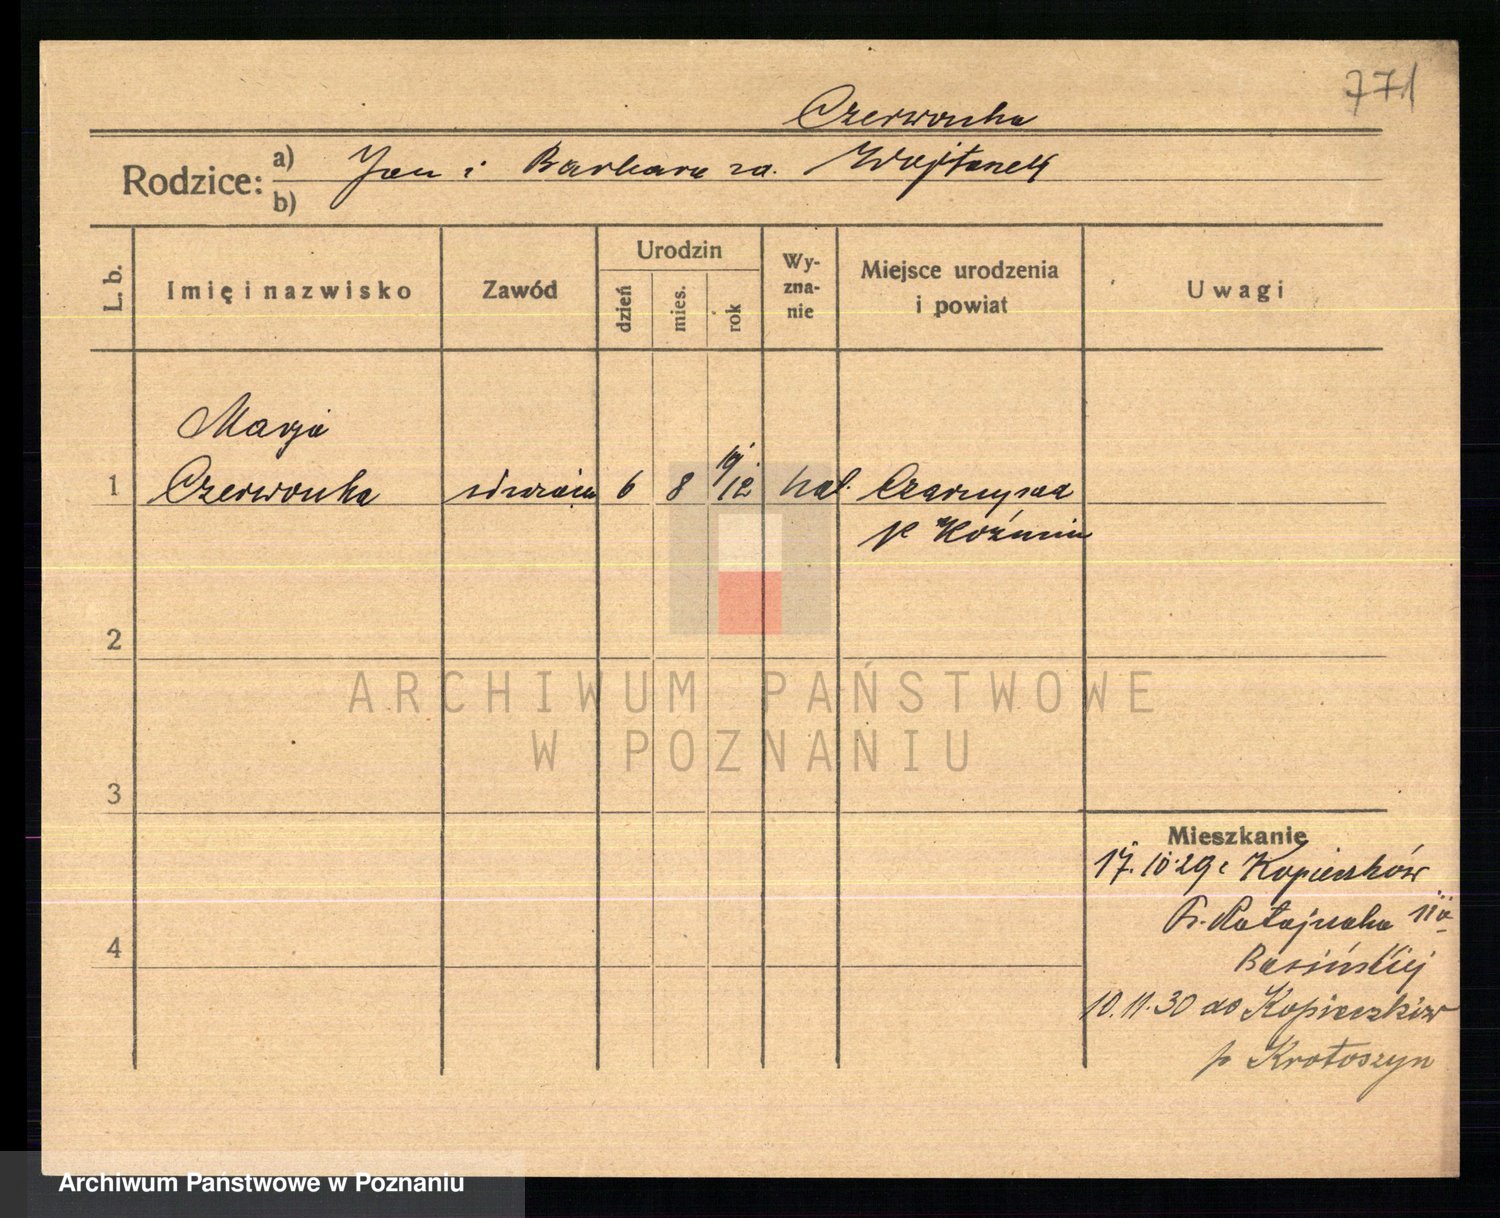 771
Czerwonka
Rodzice: a) Jan i Barbara za. Wojtanek
b)
L. b.
Imię i nazwisko
Zawód
Urodzin
dzień
mies.
rok
Wy-
zna-
nie
Miejsce urodzenia
i powiat
Uwagi
Marja
1 Czerwonka 6 8 19/12 kat. Czarnysad
p Koźmin
2
3
4
ARCHIWUM PAŃSTWOWE
W POZNANIU
Mieszkanie
17.10.29 z Kopieczków
Fr. Ratajczaka 11a
Basińskiej
10.11.30 do Kopieczków
p Krotoszyn
Archiwum Państwowe w Poznaniu